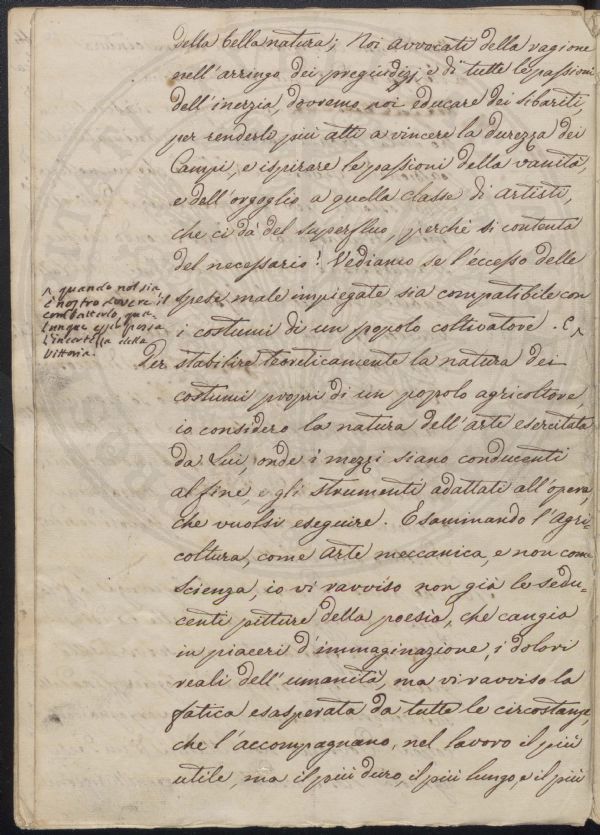 della bella natura; Noi avvocati della ragione
nell'arringo dei pregiudizj, e di tutte le passioni
dell'inerzia, dovremo noi educare dei sibariti,
per renderli più atti a vincere la durezza dei
Campi, e ispirare le passioni della vanità,
e dell'orgoglio a quella classe di artisti,
che ci dà del superfluo, perchè si contenta
del necessario! Vediamo se l'eccesso delle
spese male impiegate sia compatibile con
i costumi di un popolo coltivatore. E^
^ quando nol sia
è nostro dovere il
combatterlo, qua-
lunque esser possa
l'incertezza della
Vittoria.
Per stabilire teoreticamente la natura dei
costumi propri di un popolo agricoltore
io considero la natura dell'arte esercitata
da Lui, onde i mezzi siano conducenti
al fine, e gli strumenti adattati all'opera,
che vuolsi eseguire. Esaminando l'Agri-
coltura, come Arte meccanica, e non come
scienza, io vi ravviso non già le sedu-
centi pitture della poesia, che cangia
in piaceri d'immaginazione, i dolori
reali dell'umanità, ma vi ravviso la
fatica esasperata da tutte le circostanze
che l'accompagnano, nel lavoro il più
utile, ma il più duro, il più lungo, e il più